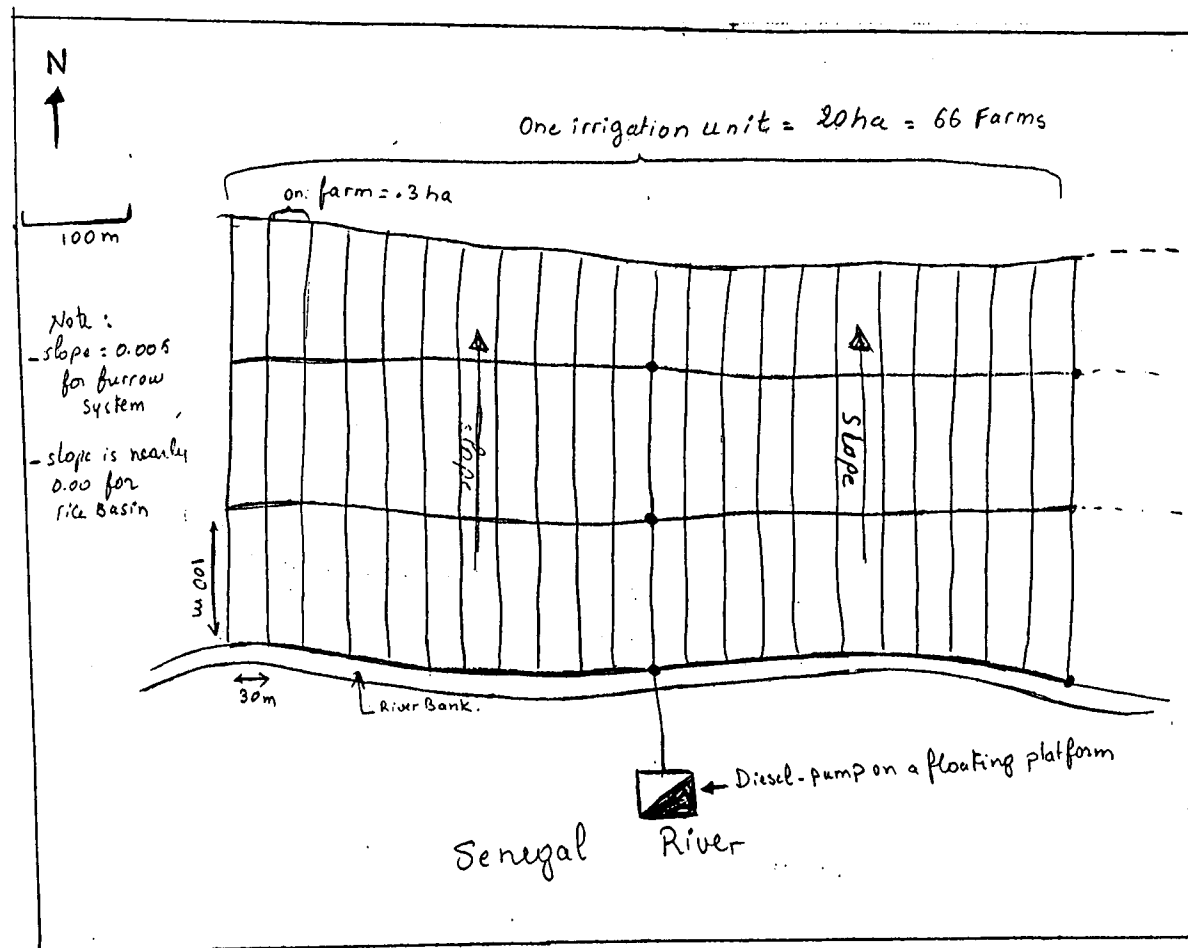 N
One irrigation unit = 20ha = 66 Farms
on. farm = .3 ha
100m
Note :
- slope = 0.005
for furrow
system
- slope is nearly
0.00 for
rice Basin
slope
Slope
100 m
30m
River Bank.
Diesel-pump on a floating platform
Senegal River